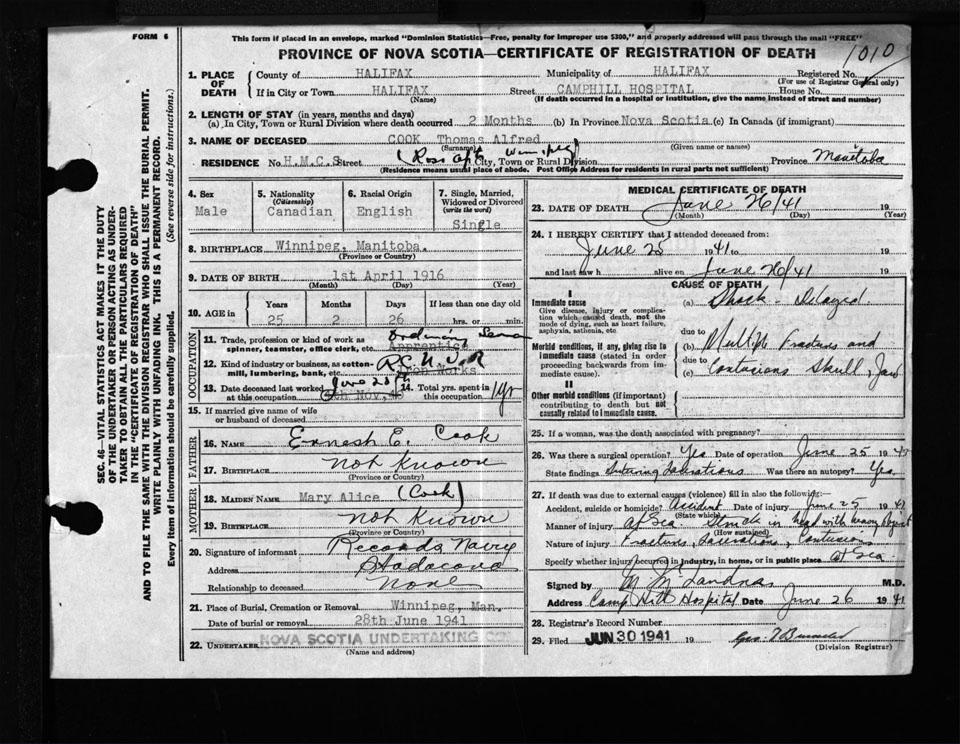 FORM 6
This form if placed in an envelope, marked "Dominion Statistics—Free, penalty for improper use $300," and properly addressed will pass through the mail "FREE"
PROVINCE OF NOVA SCOTIA—CERTIFICATE OF REGISTRATION OF DEATH
1010
SEC. 46—VITAL STATISTICS ACT MAKES IT THE DUTY
OF THE UNDERTAKER OR PERSON ACTING AS UNDER-
TAKER TO OBTAIN ALL THE PARTICULARS REQUIRED
IN THE "CERTIFICATE OF REGISTRATION OF DEATH"
AND TO FILE THE SAME WITH THE DIVISION REGISTRAR WHO SHALL ISSUE THE BURIAL PERMIT.
WRITE PLAINLY WITH UNFADING INK. THIS IS A PERMANENT RECORD.
Every item of information should be carefully supplied. (See reverse side for instructions.)
1. PLACE OF DEATH
County of HALIFAX Municipality of HALIFAX Registered No.
(For use of Registrar General only)
If in City or Town HALIFAX Street CAMPHILL HOSPITAL House No.
(Name) (If death occurred in a hospital or institution, give the name instead of street and number)
2. LENGTH OF STAY (in years, months and days)
(a) In City, Town or Rural Division where death occurred 2 Months (b) In Province Nova Scotia (c) In Canada (if immigrant)
3. NAME OF DECEASED COOK Thomas Alfred
(Surname) Given name or names)
RESIDENCE No. H.M.C.S Street (Ross Apts Winnipeg) City, Town or Rural Division Province Manitoba
(Residence means usual place of abode. Post Office Address for residents in rural parts not sufficient)
4. Sex
Male
5. Nationality
(Citizenship)
Canadian
6. Racial Origin
English
7. Single, Married,
Widowed or Divorced
(write the word)
Single
8. BIRTHPLACE Winnipeg, Manitoba.
(Province or Country)
9. DATE OF BIRTH 1st April 1916
(Month) (Day) (Year)
10. AGE in
Years Months Days If less than one day old
25 2 26 hrs. or min.
OCCUPATION
11. Trade, profession or kind of work as
spinner, teamster, office clerk, etc. Apprentice
12. Kind of industry or business, as cotton-
mill, lumbering, bank, etc. Iron Works R C N V R
13. Date deceased last worked
at this occupation Nov. June 25th
14. Total yrs. spent in
this occupation 1 yr
15. If married give name of wife
or husband of deceased
FATHER
16. NAME Ernest E. Cook
17. BIRTHPLACE not Known
(Province or Country)
MOTHER
18. MAIDEN NAME Mary Alice (Cook)
19. BIRTHPLACE not Known
(Province or Country)
20. Signature of informant Records Navy
Address Stadacona
Relationship to deceased None
21. Place of Burial, Cremation or Removal Winnipeg, Man.
Date of burial or removal 28th June 1941
22. UNDERTAKER NOVA SCOTIA UNDERTAKING CO
(Name and address)
MEDICAL CERTIFICATE OF DEATH
23. DATE OF DEATH June 26/41 19
(Month) (Day) (Year)
24. I HEREBY CERTIFY that I attended deceased from:
June 25 1941 to 19
and last saw h alive on June 26/41 19
CAUSE OF DEATH
I
Immediate cause
Give disease, injury or complica-
tion which caused death, not the
mode of dying, such as heart failure,
asphyxia, asthenia, etc
(a) Shock - Delayed.
due to
Morbid conditions, if any, giving rise to
immediate cause (stated in order
proceeding backwards from im-
mediate cause).
(b) Multiple Fractures and
due to
(c) Contusions Skull, Jaw
II
Other morbid conditions (if important)
contributing to death but not
causally related to immediate cause.
25. If a woman, was the death associated with pregnancy?
26. Was there a surgical operation? Yes Date of operation June 25 19
State findings Suturing Lacerations Was there an autopsy? Yes
27. If death was due to external causes (violence) fill in also the following:—
Accident, suicide or homicide? Accident Date of injury June 25 1941
(State which)
Manner of injury At Sea. Struck in head with heavy
(How sustained)
Nature of injury Fractures, Lacerations, Contusions
Specify whether injury occurred in industry, in home, or in public place at Sea.
Signed by M.D.
Address Camp Hill Hospital Date June 26 1941
28. Registrar's Record Number
29. Filed JUN 30 1941 19
(Division Registrar)